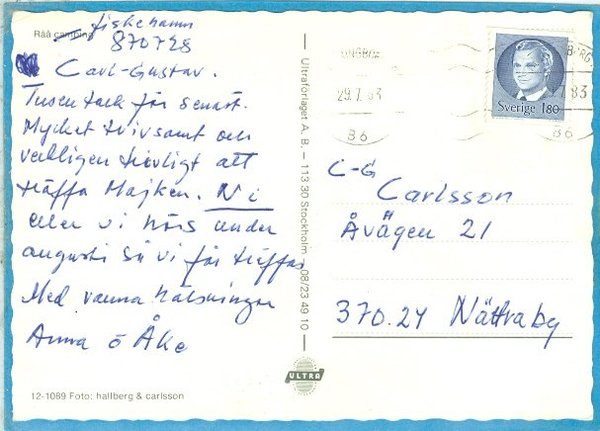 Råå camping
fiskehamn
870728
Carl-Gustav.
Tusen tack för senast.
Mycket trivsamt och
verkligen trevligt att
träffa Majken. Ni
eller vi hörs under
augusti så vi får träffas
Med varma hälsningar
Anna o Åke
12-1089 Foto: hallberg & carlsson
Ultraförlaget A. B. — 113 30 Stockholm — 08/23 49 10
ULTRA
29.7.83
B6
Sverige 180
7.83
B6
C-G
Carlsson
Åvägen 21
370.24 Nättraby